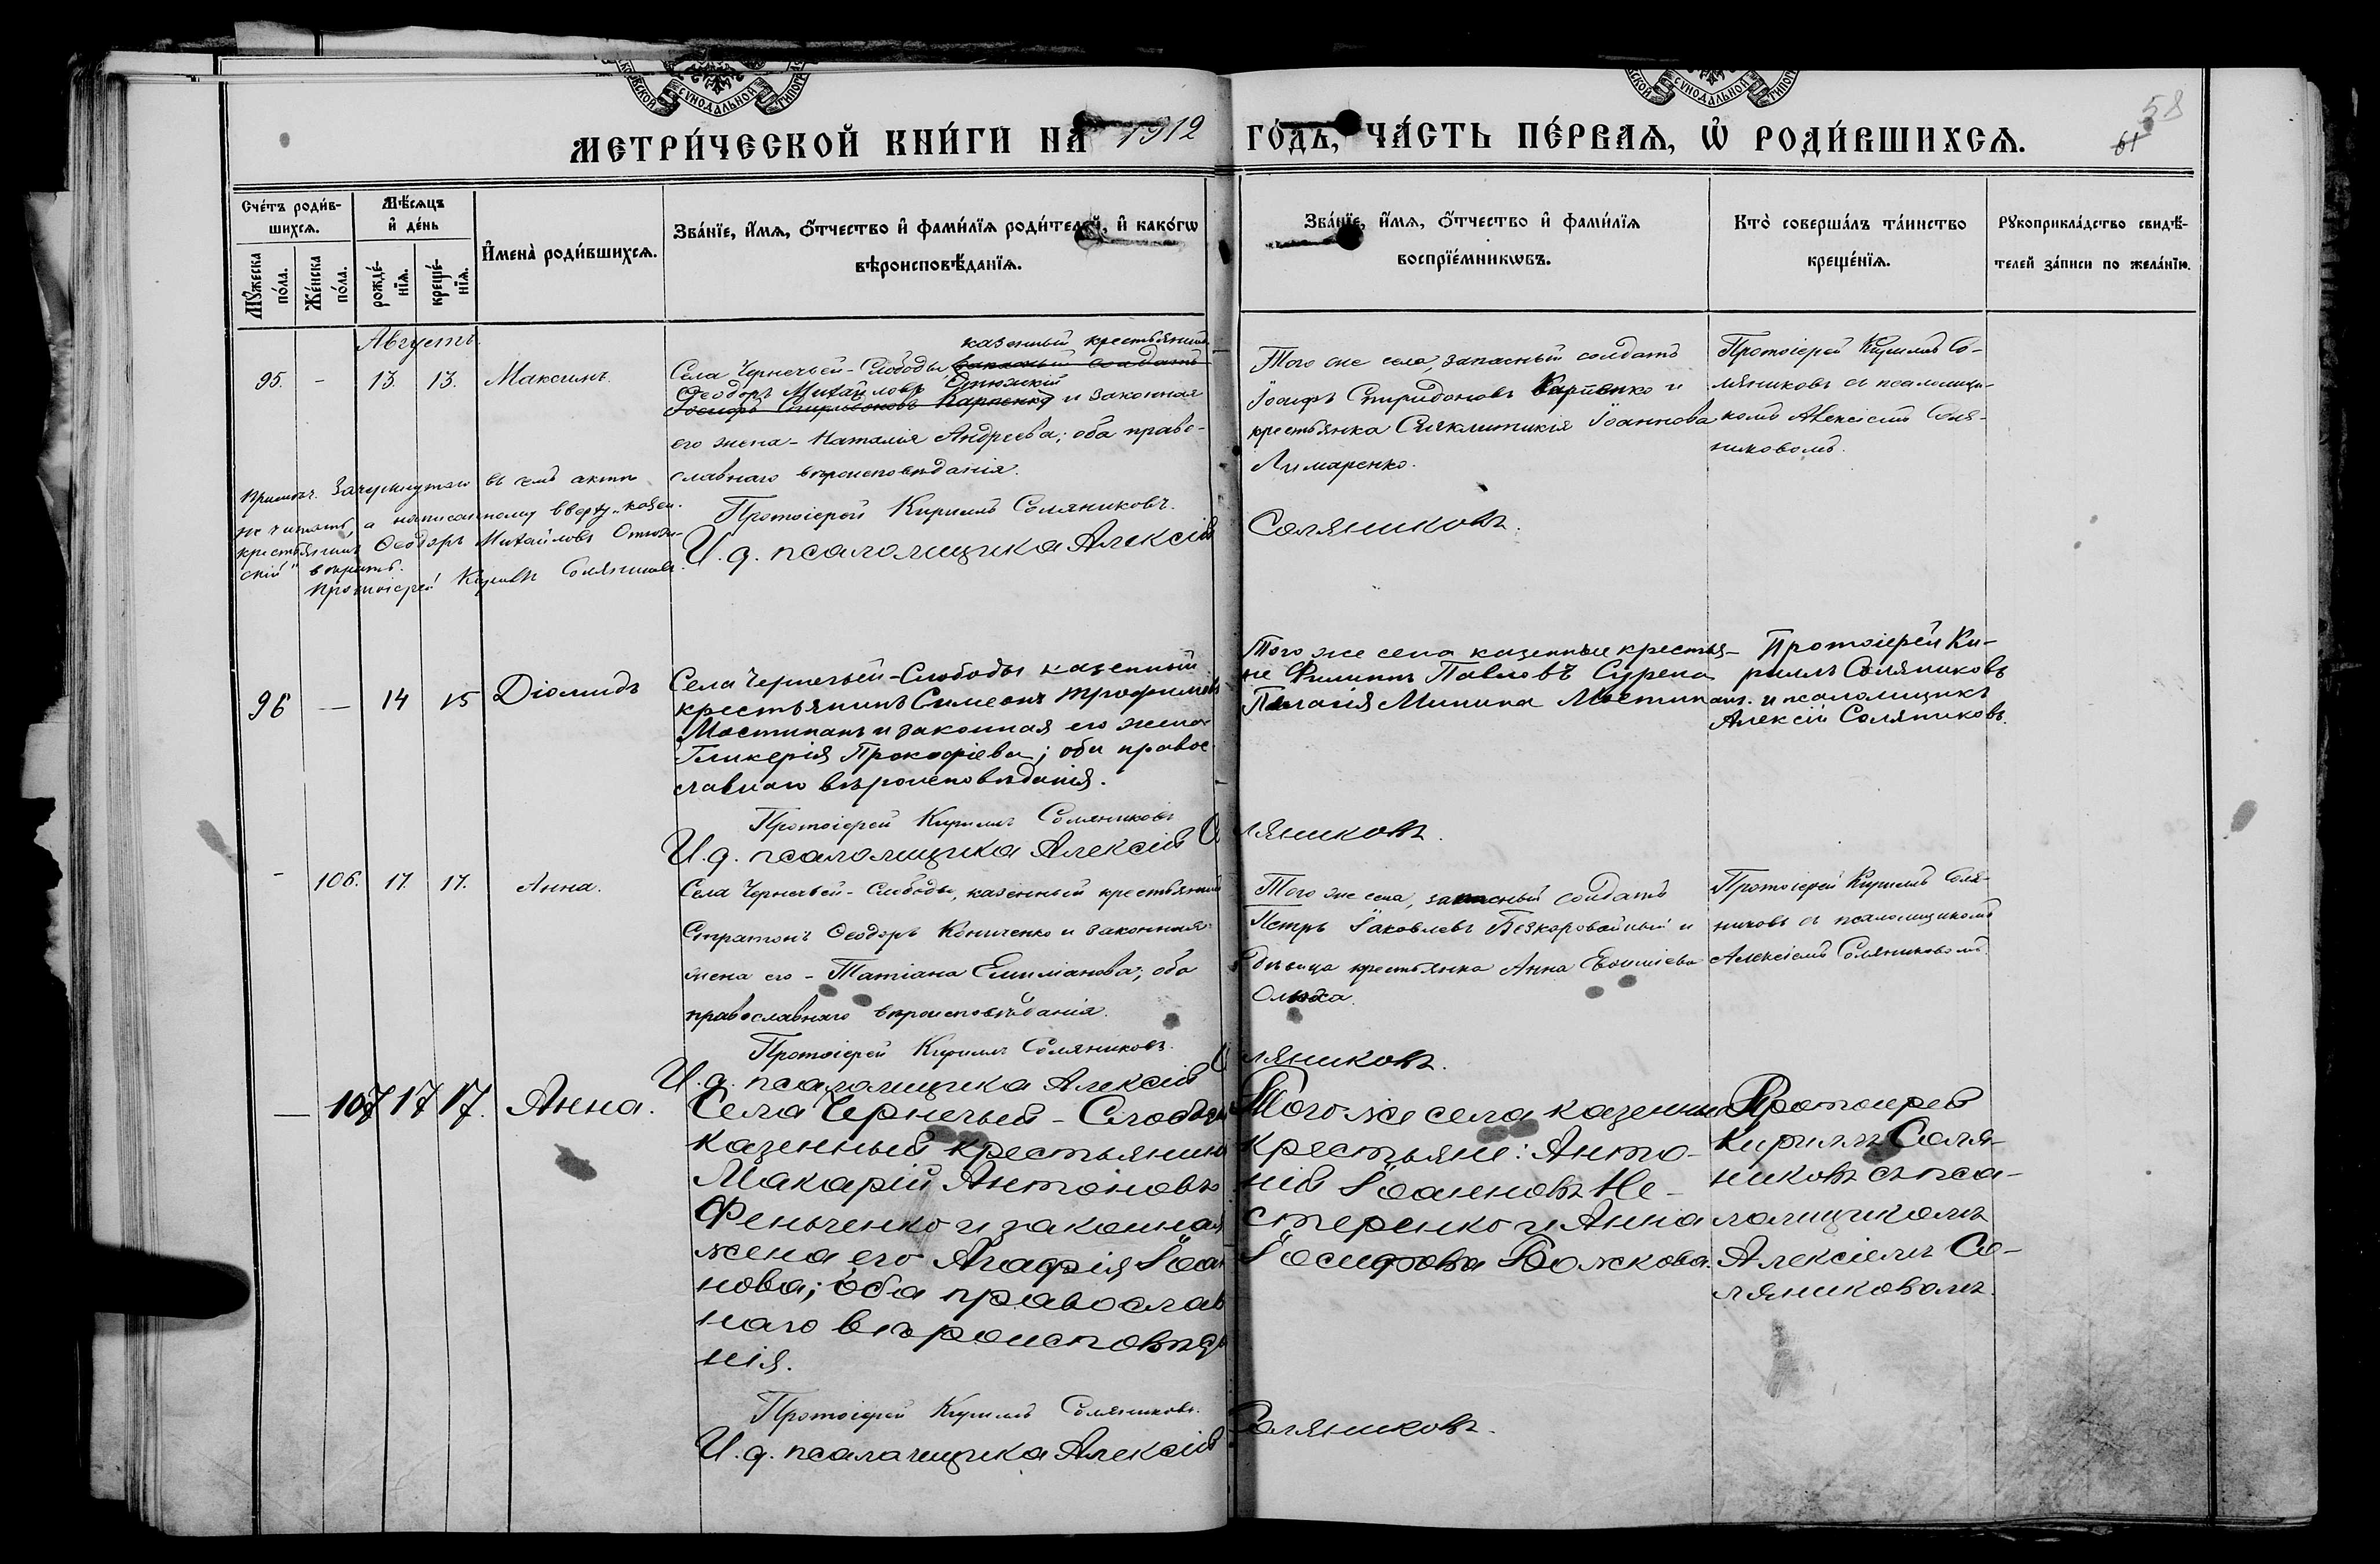 МЕТРИ́ЧЕСКОЙ КНИ́ГИ НА 1912 ГО́ДЪ, ЧА́СТЬ ПЕ́РВАѦ, Ѡ҆ РОДИ́ВШИХСѦ.
58
61
Сче́тъ роди́в-
шихсѧ.
Мѣ́сѧцъ
и҆ де́нь
Мꙋ́жеска по́ла.
Же́нска по́ла.
рожде́-
нїѧ.
креще́-
нїѧ.
И҆мена̀ роди́вшихсѧ.
Зва́нїе, и҆́мѧ, ѻ҆́тчество и҆ фами́лїѧ роди́телей, и҆ како́гѡ
вѣроисповѣ́данїѧ.
Зва́нїе, и҆́мѧ, ѻ҆́тчество и҆ фами́лїѧ
воспрїе́мникѡвъ.
Кто̀ соверша́лъ та́инство
креще́нїѧ.
Рꙋкоприкла́дство свидѣ́-
телей за́писи по жела́нїю.
Августъ.
95. - 13. 13. Максимъ.
казенный крестьянинъ
Села Чернечьей-Слободы запасный солдатъ
Ѳеодоръ Михайловъ
Іосифъ Спиридоновъ Карпенко и законная
его жена - Наталія Андреева; оба право-
славнаго вѣроисповѣданія.
Протоіерей Кириллъ Соляниковъ.
И. д. псаломщика Алексій Соляниковъ.
Примѣч. Зачеркнутаго въ семъ актѣ
не читать, а написанному вверху „казен.
крестьянинъ Ѳеодоръ Михайловъ
скій" вѣрить.
Протоіерей Кириллъ Соляниковъ.
Того же села, запасный солдатъ
Іосифъ Спиридоновъ Карпенко и
крестьянка Синклитикія Іоаннова
Лимаренко.
Протоіерей Кириллъ Со-
ляниковъ съ псаломщи-
комъ Алексіемъ Соля-
никовомъ.
96 — 14 15 Діомидъ
Села Чернечьей-Слободы казенный
крестьянинъ Симеонъ Трофимовъ
Мостипанъ и законная его жена
Гликерія Прокофіева; оба правос-
славнаго вѣроисповѣданія.
Протоіерей Кириллъ Соляниковъ
И. д. псаломщика Алексій Соляниковъ.
Того же села казенные крестья-
не Филиппъ Павловъ Сурела
Пелагія Минина Мостипанъ.
Протоіерей Ки-
риллъ Соляниковъ
и псаломщикъ
Алексій Соляниковъ.
- 106. 17. 17. Анна.
Села Чернечьей-Слободы, казенный крестьянинъ
Стратонъ Ѳеодоръ Кониченко и законная
жена его - Татіана Емиліанова; оба
православнаго вѣроисповѣданія.
Протоіерей Кириллъ Соляниковъ.
И. д. псаломщика Алексій Соляниковъ.
Того же села, запасный солдатъ
Петръ Іаковлевъ Безкоровайный и
дѣвица крестьянка Анна
Протоіерей Кириллъ Соля-
никовъ съ псаломщикомъ
Алексіемъ Соляниковомъ.
— 107 17 17. Анна.
Села Чернечьей-Слободы
казенный крестьянинъ
Макарій Антоновъ
Феньченко и законная
жена его Агафія Іоан-
нова; оба православ-
наго вѣроисповѣда-
нія.
Протоіерей Кириллъ Соляниковъ.
И. д. псаломщика Алексій Соляниковъ.
Того же села казенные
крестьяне: Анто-
ній Іоанновъ Не-
стеренко и Анна
Іосифова Божкова.
Протоіерей
Кириллъ Соля-
никовъ съ пса-
ломщикомъ
Алексіемъ Со-
ляниковомъ.